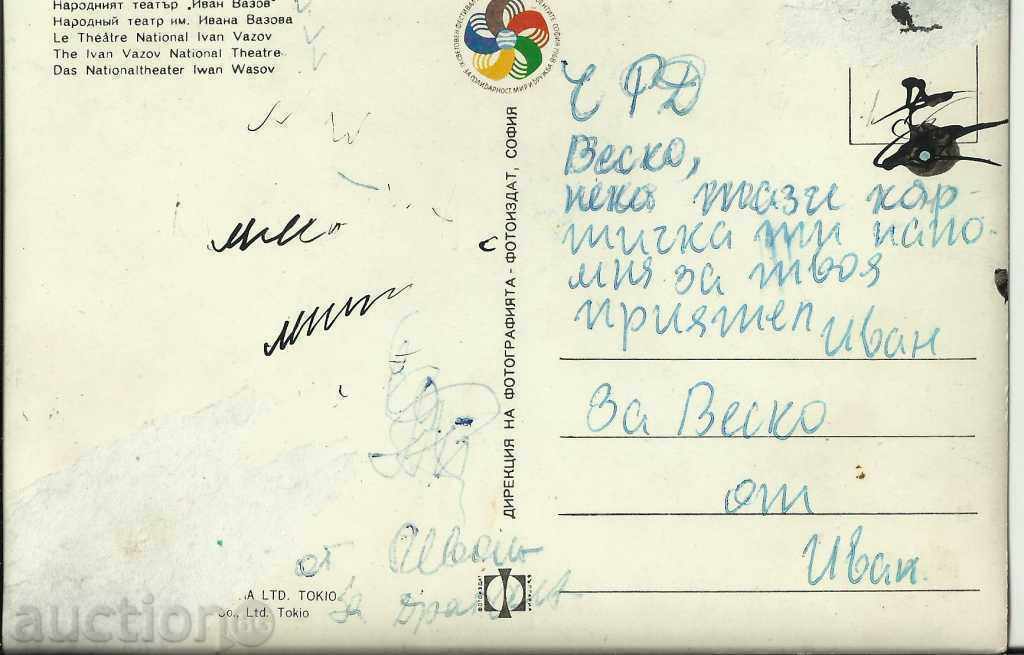 Народният театър „Иван Вазов"
Народный театр им. Ивана Вазова
Le Théâtre National Ivan Vazov
The Ivan Vazov National Theatre
Das Nationaltheater Iwan Wasov
ЗА СОЛИДАРНОСТ, МИР И ДРУЖБА
ДИРЕКЦИЯ НА ФОТОГРАФИЯТА - ФОТОИЗДАТ, СОФИЯ
Ч Р Д
Веско,
нека тази кар-
тичка ти напо-
мня за твоя
приятел Иван
За Веско
от
Иван.
от Иван
За
LTD. TOKIO
Co., Ltd. Tokio
ФОТОИЗДАТ
auction.bg